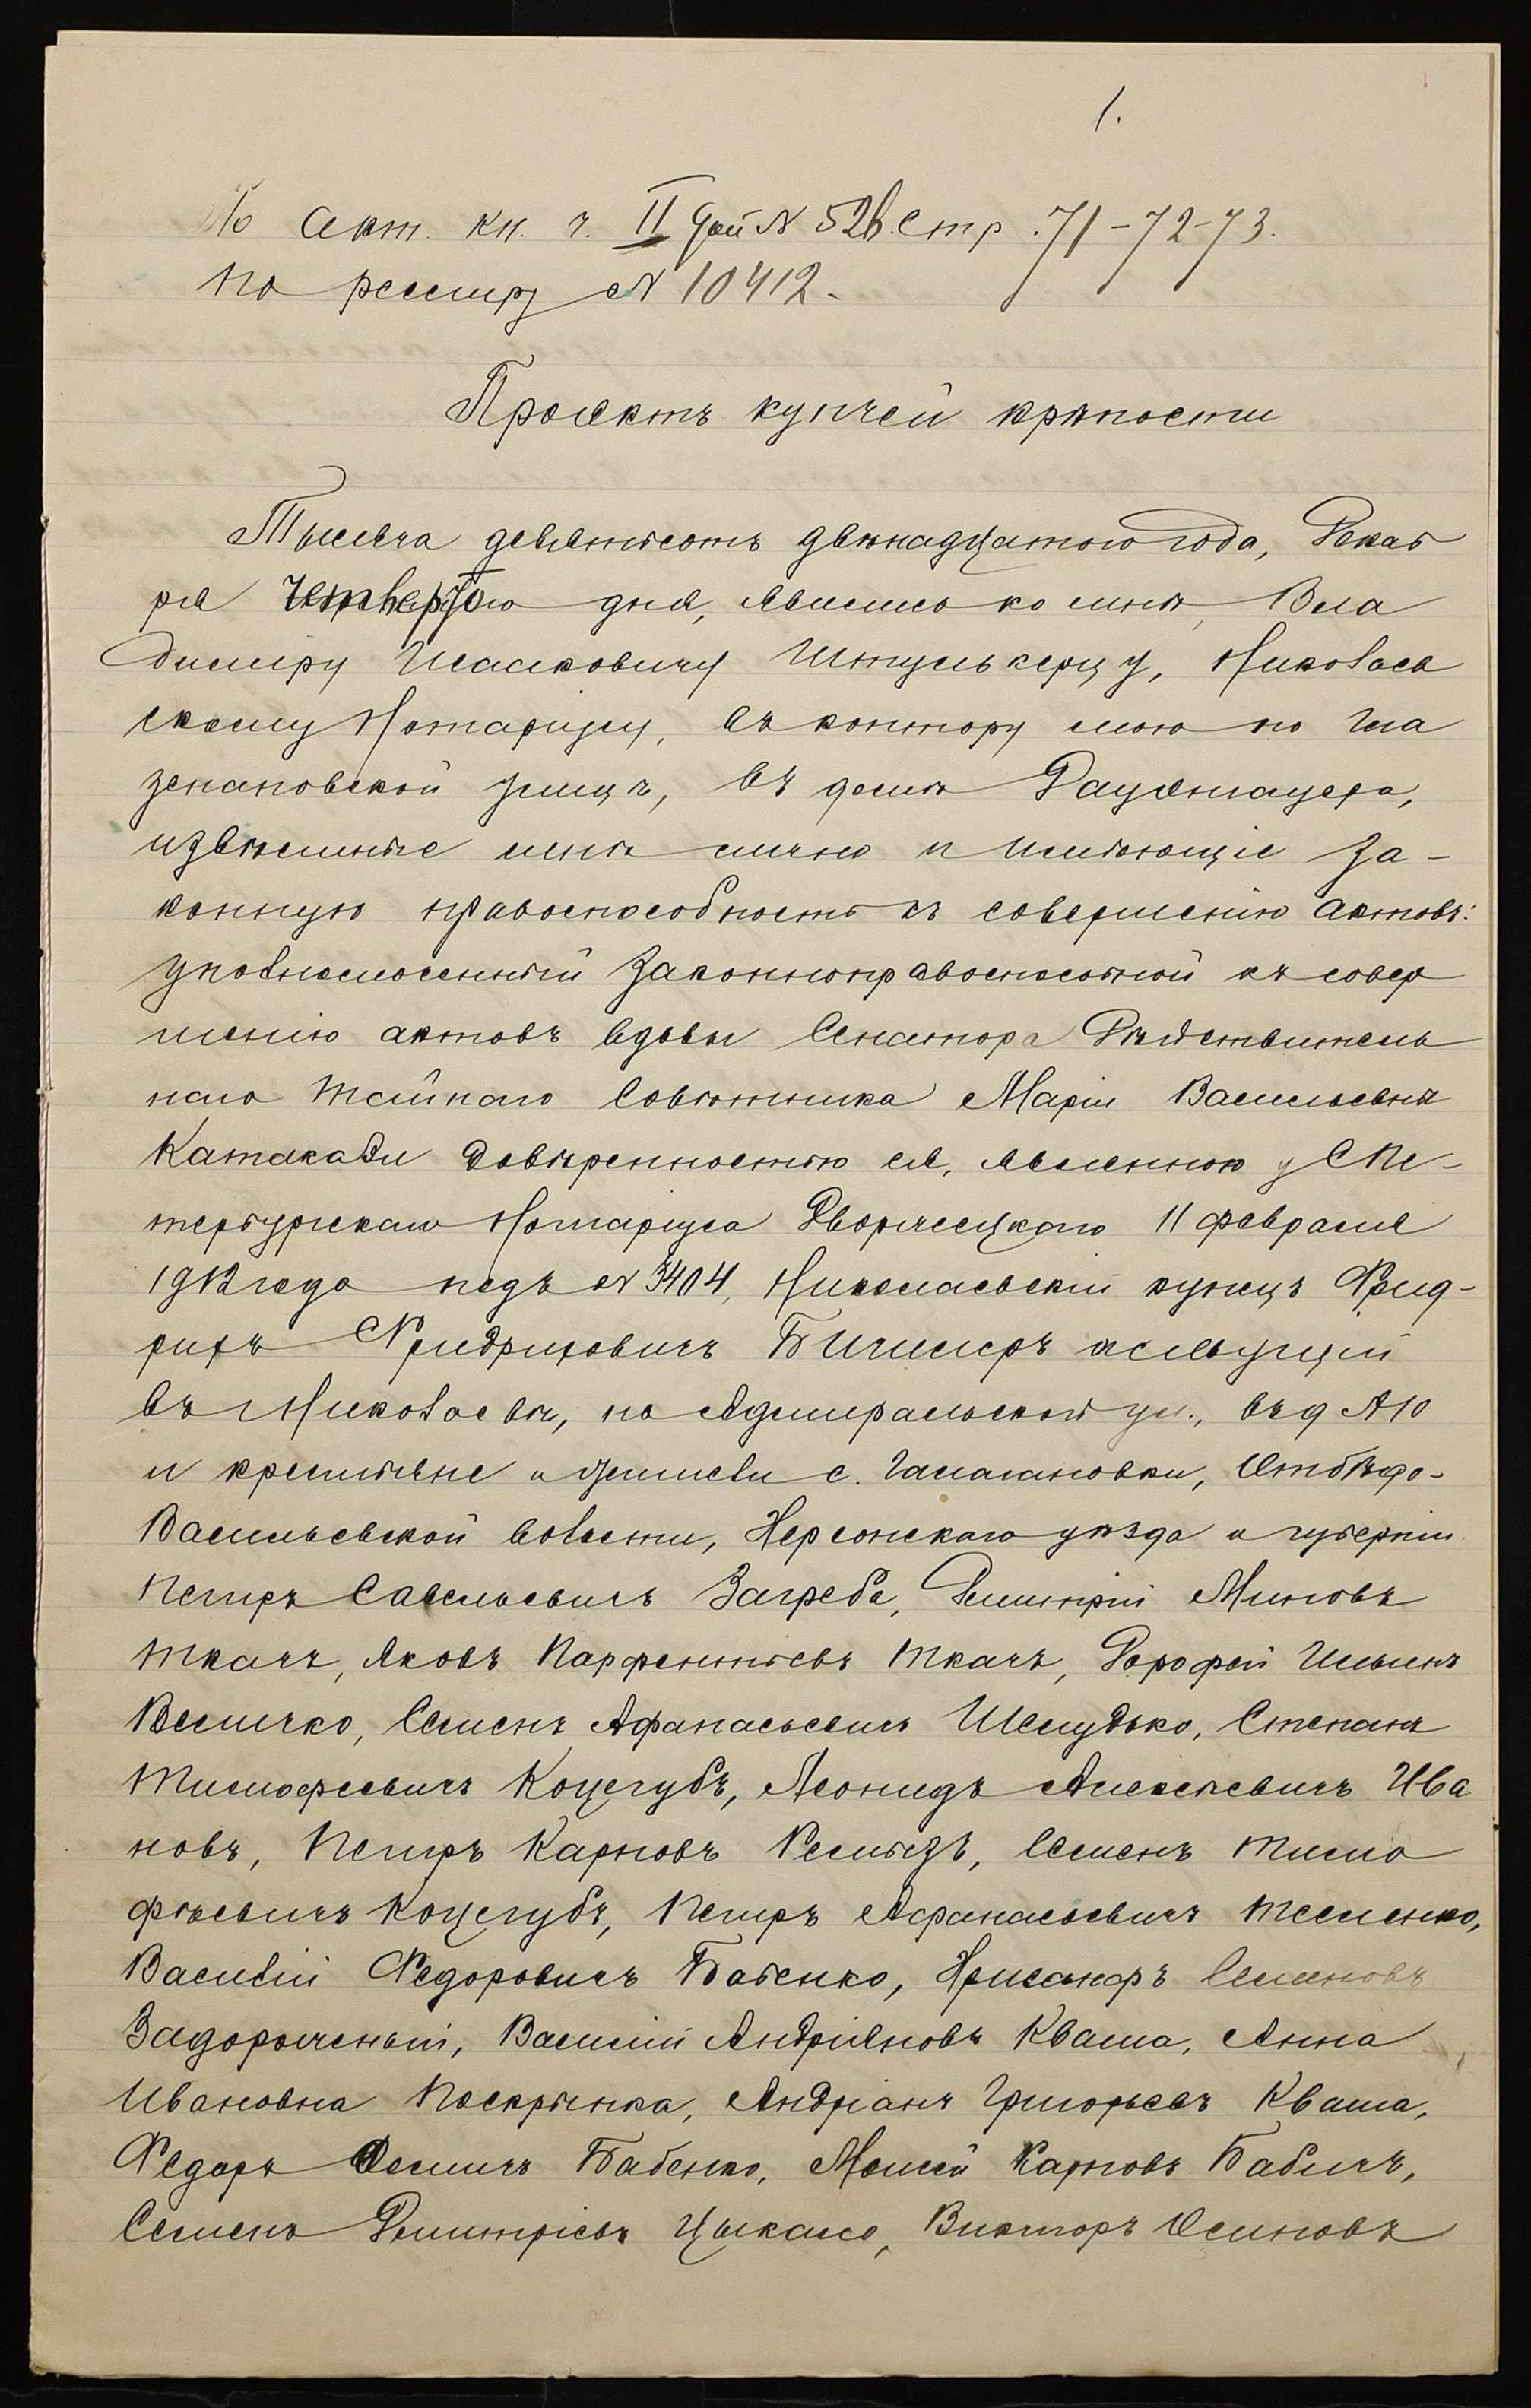 1.
По Акт. кн. ч. II дѣй № 52б. Стр. 71-72-73.
По реестру № 10412.
Проэктъ купчей крѣпости
Тысяча девятьсотъ двѣнадцатого года, Декаб
ря Четвертого дня, явились ко мнѣ, Вла
димiру Исааковичу Штулькерцу, Николаев
скому Нотарiусу, въ контору мою по Гла
зенаповской улицѣ, въ домѣ Рауенгауера,
извѣстные мнѣ лично и имѣющiе за-
конную правоспособность къ совершенiю актовъ:
уполномоченный законноправоспособной къ совер
шенiю актовъ вдовы Сенатора Дѣйствитель
наго Тайнаго Совѣтника Марiи Васильевны
Катакази довѣренностью ея, явленною у СПе-
тербургскаго Нотарiуса Дворжецкаго 11 февраля
1912 года подъ № 3404, Николаевскiй купецъ Фрид-
рихъ Фридриховичъ Бишлеръ живущiй
въ Николаевѣ, по Адмиральской ул., въ д № 10
и крестьяне и жители с. Галагановки, Отбѣдо-
Васильевской волости, Херсонскаго уѣзда и губернiи
Петръ Савельевичъ Загреба, Димитрiй Миновъ
Ткачъ, Яковъ Парфентьевъ Ткачъ, Дорофей Ильинъ
Величко, Семенъ Афанасьевичъ Шелудько, Степанъ
Тимофеевичъ Коцегубъ, Леонидъ Алексѣевичъ Ива
новъ, Петръ Карповъ Ремызъ, Семенъ Тимо
фѣевичъ Коцегубъ, Петръ Афанасьевичъ Тесленко,
Василiй Федоровичъ Бабенко, Хрисанфъ Семеновъ
Задорожный, Василiй Андрiяновъ Кваша, Анна
Ивановна Поскрынка, Андрiанъ Григорьевъ Кваша,
Федоръ Фомичъ Бабенко, Моисей Карповъ Бабичъ,
Семенъ Димитрiевъ Цыкало, Викторъ Осиповъ